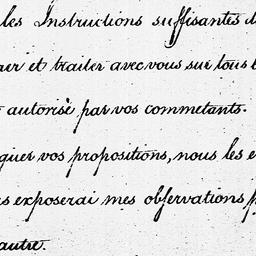 les Instructions suffisantes d
uer et traiter avec vous sur tous l
autorisé par vos commetants.
quer vos propositions, nous les e
s exposerai mes observations p
autre.